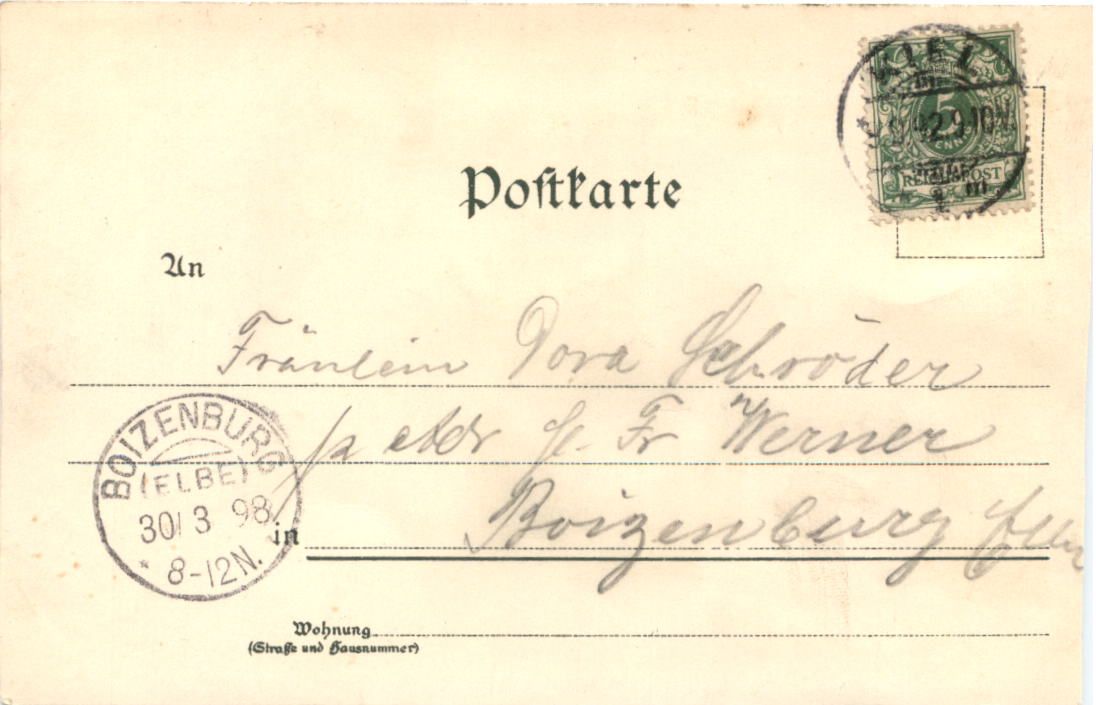 KIEL
5
PFENNIG
REICHSPOST
Postkarte
An
Fräulein Dora Schröder
p. Adr Fr Werner
BOIZENBURG
(ELBE)
30/3 98
* 8-12N.
in Boizenburg Elbe
Wohnung
(Straße und Hausnummer)